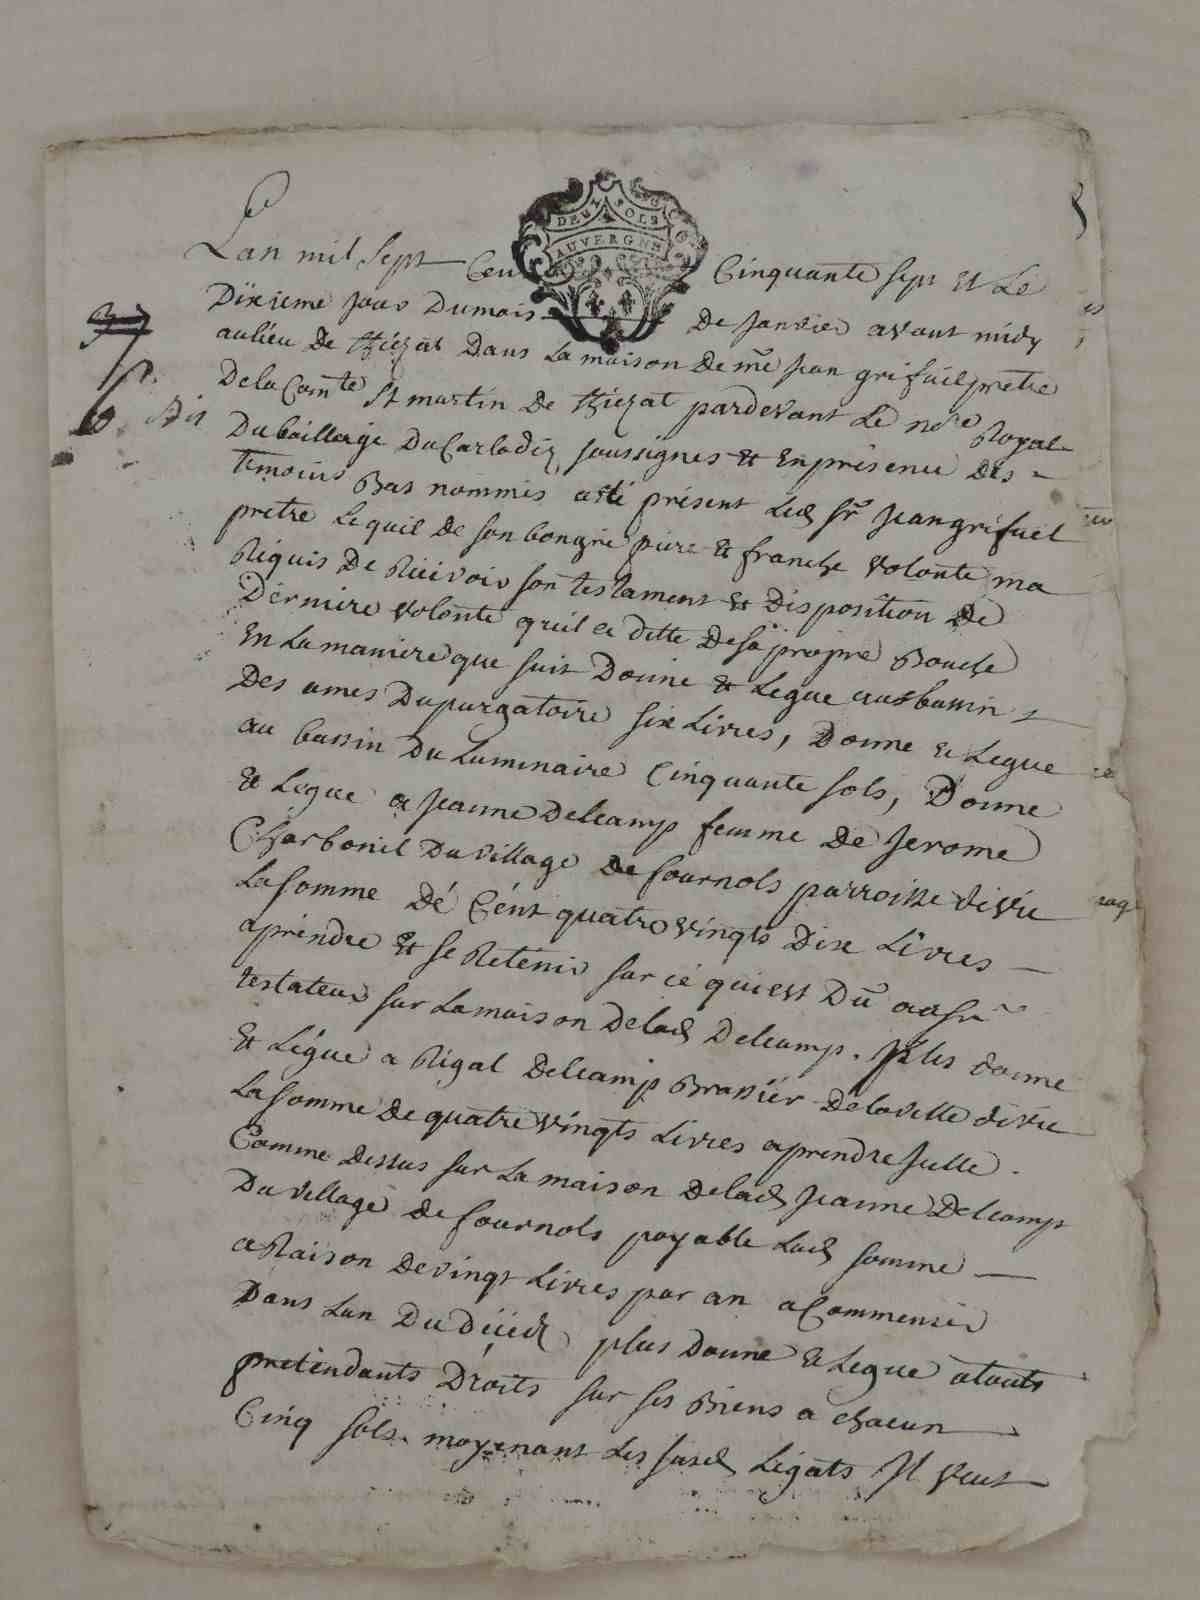 DEUX SOLS
AUVERGNE
Lan mil sept Cent Cinquante sept et Le
Dixieme jour Dumois De Janvier avant midy
aulieu De thiezat Dans La maison De me Jean grifuel pretre
Dela Comte St martin De thiezat pardevant Le nore Royal
Du bailliage Du Carladez, soussignes et Enpresence Des
temoins Bas nommes a été présent Led sr Jean grifuel
pretre Lequel De son bongré pure et franche volonte ma
Réquis De Recevoir son testament et Disposition De
Derniere volonte quil a ditte Desa propre Bouche
En La maniere que suit Donne et Legue aux bassin
Des ames Du purgatoire six Livres, Donne et Legue
au bassin Du Luminaire Cinquante sols, Donne
et Legue a Jeanne Delcamp femme De Jerome
Charbonil Du village de fournols parroisse de vic
La somme Dé Cént quatre vingts Dix Livres
aprendre et se Retenir sur ce qui est Du au sr
testateur sur La maison Delad Delcamp. plus donne
et Légue a Rigal Delcamp Brassier Dela ville de vic
La somme de quatre vingts Livres aprendre Jcelle
Comme Dessus sur La maison Delad Jeanne Delcamp
Du village de fournols payable Lad somme
a Raison de vingt Livres par an a Commencer
Dans Lan Du Décéd plus Donne et Legue a touts
prétendants Droits sur ses Biens a chacun
Cinq sols. moyenant Les susd Légats Jl veut